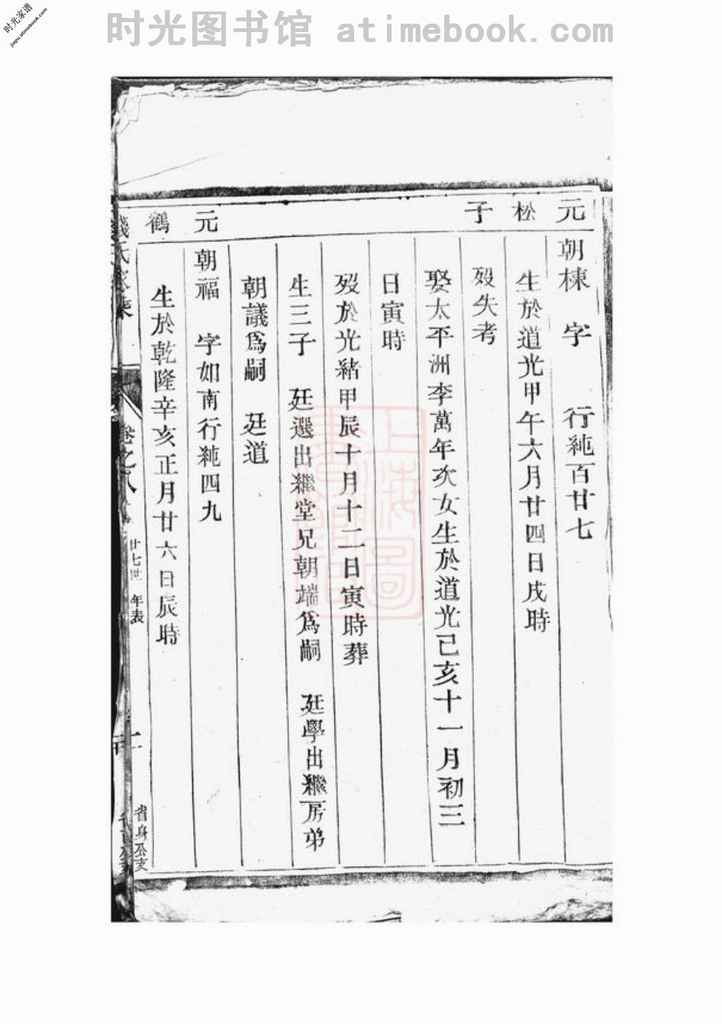 时光图书馆 atimebook.com
时光家谱
jiapu.atimebook.com
元松子
元鶴
朝棟 字 行純百廿七
生於道光甲午六月廿四日戌時
歿失考
娶太平洲李萬年次女生於道光己亥十一月初三
日寅時
歿於光緒甲辰十月十二日寅時葬
生三子 廷選出繼堂兄朝端爲嗣 廷學出繼房弟
朝議爲嗣 廷道
朝福 字如南行純四九
生於乾隆辛亥正月廿六日辰時
錢氏家乘
卷之八
廿七世 年表
省身公支
上海圖書館